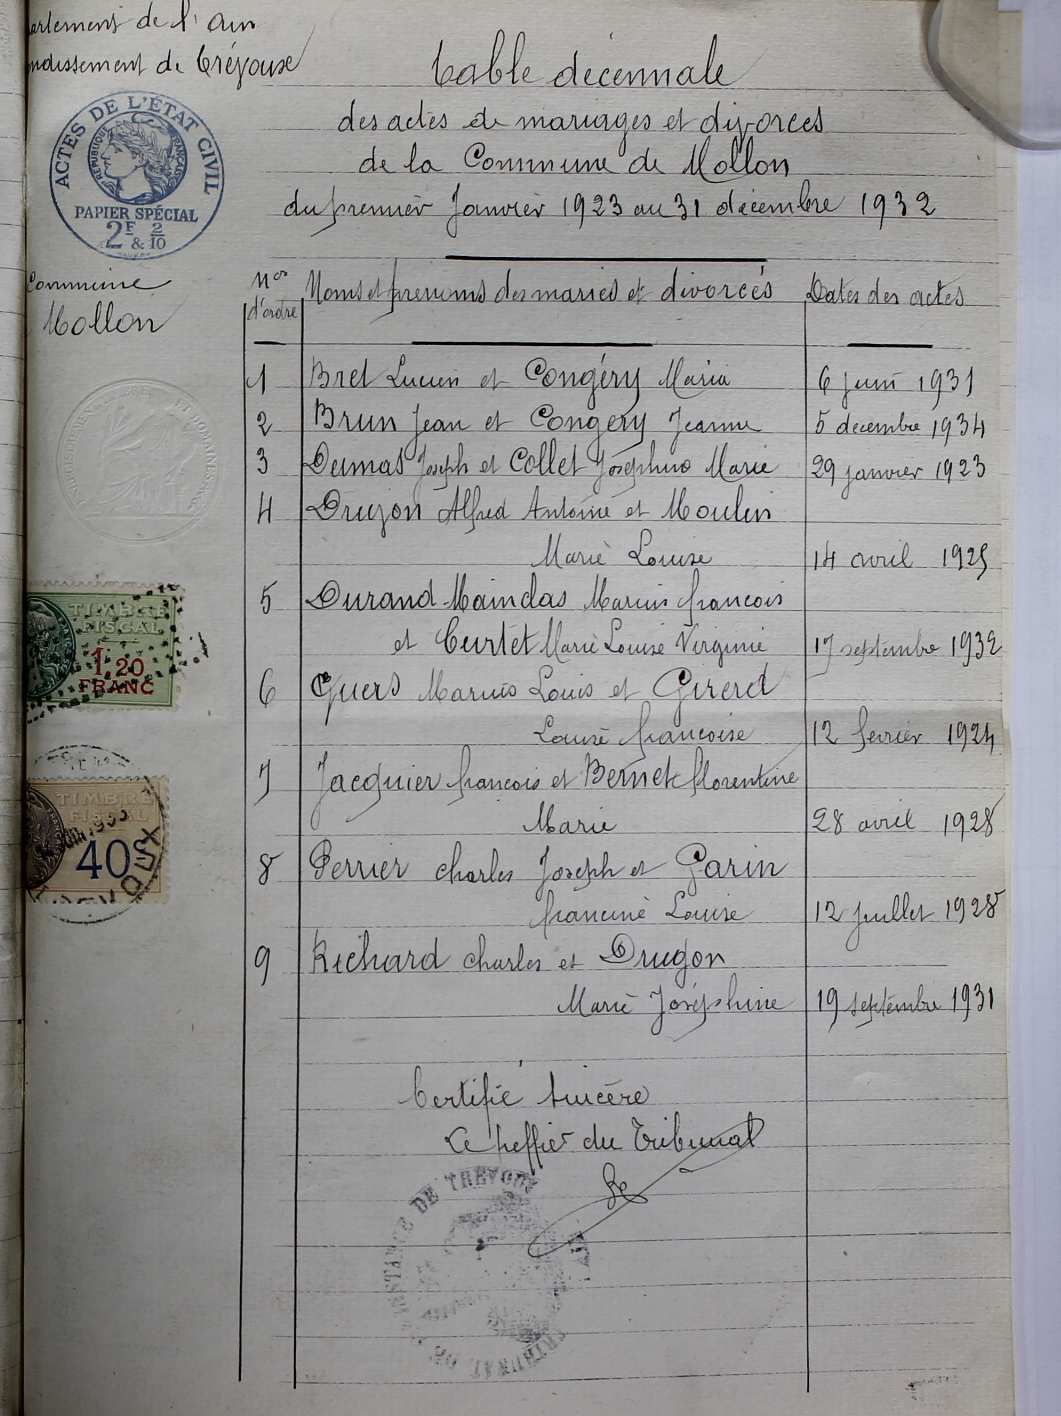 artement de l'Ain
ndissement de Trévoux
Table décennale
des actes de mariages et divorces
de la Commune de Mollon
du premier Janvier 1923 au 31 décembre 1932
ACTES DE L'ÉTAT CIVIL
RÉPUBLIQUE FRANÇAISE
PAPIER SPÉCIAL
2F 2/10
& 10
Commune
Mollon
Nos d'ordre
Noms et prenoms des mariés et divorcés
Dates des actes
1 Bret Lucien et Congéry Maria 6 juin 1931
2 Brun Jean et Congéry Jeanne 5 decembre 1934
3 Dumas Joseph et Collet Joséphine Marie 29 janvier 1923
4 Drujon Alfred Antoine et Moulin
Marie Louise 14 avril 1925
5 Durand-Maindas Marius françois
et Curtet Marie Louise Virginie 17 septembre 1932
6 Guers Marius Louis et Girerd
Louise françoise 12 fevrier 1924
7 Jacquier françois et Bernet florentine
Marie 28 avril 1928
8 Perrier charles Joseph et Garin
francine Louise 12 juillet 1928
9 Richard charles et Drugon
Marie Joséphine 19 septembre 1931
TIMBRE
FISCAL
1,20
FRANC
TIMBRE
FISCAL
40
Certifié sincère
Le Greffier du Tribunal
DE TREVOUX